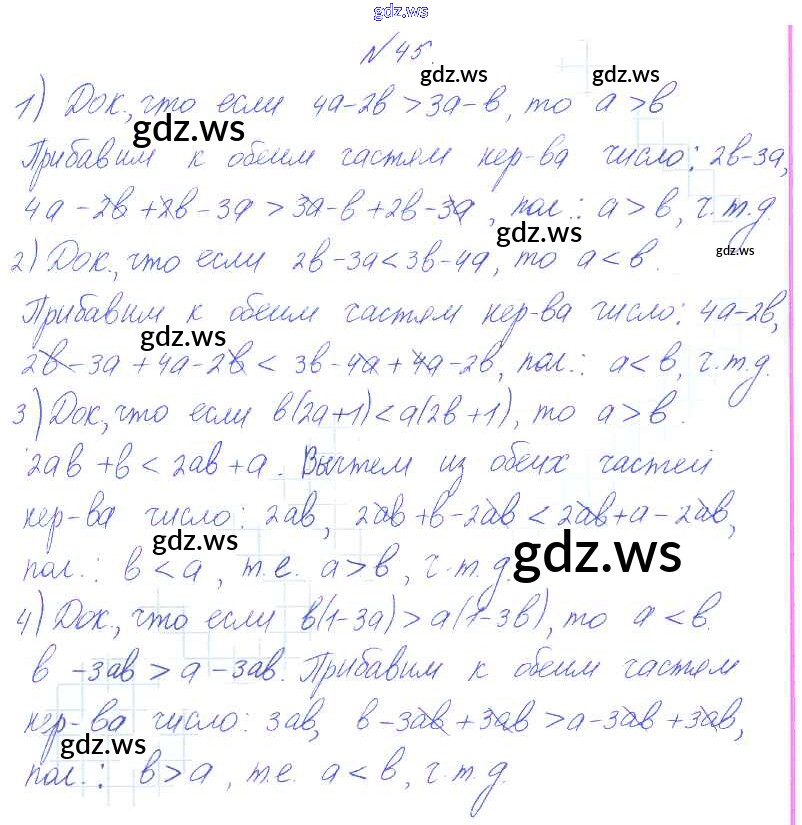 gdz.ws
№ 45.
gdz.ws
1) Док., что если 4a-2b>3a-b, то a>b
gdz.ws
Прибавим к обеим частям нер-ва число: 2b-3a,
4a-2b+2b-3a>3a-b+2b-3a, пол.: a>b, ч.т.д.
gdz.ws
gdz.ws
2) Док., что если 2b-3a<3b-4a, то a<b.
Прибавим к обеим частям нер-ва число: 4a-2b,
gdz.ws
2b-3a+4a-2b<3b-4a+4a-2b, пол.: a<b, ч.т.д.
3) Док., что если b(2a+1)<a(2b+1), то a>b.
2ab+b<2ab+a. Вычтем из обеих частей
нер-ва число: 2ab, 2ab+b-2ab<2ab+a-2ab,
gdz.ws
gdz.ws
пол.: b<a, т.е. a>b, ч.т.д.
4) Док., что если b(1-3a)>a(1-3b), то a<b.
b-3ab>a-3ab. Прибавим к обеим частям
нер-ва число: 3ab, b-3ab+3ab>a-3ab+3ab,
gdz.ws
gdz.ws
пол.: b>a, т.е. a<b, ч.т.д.